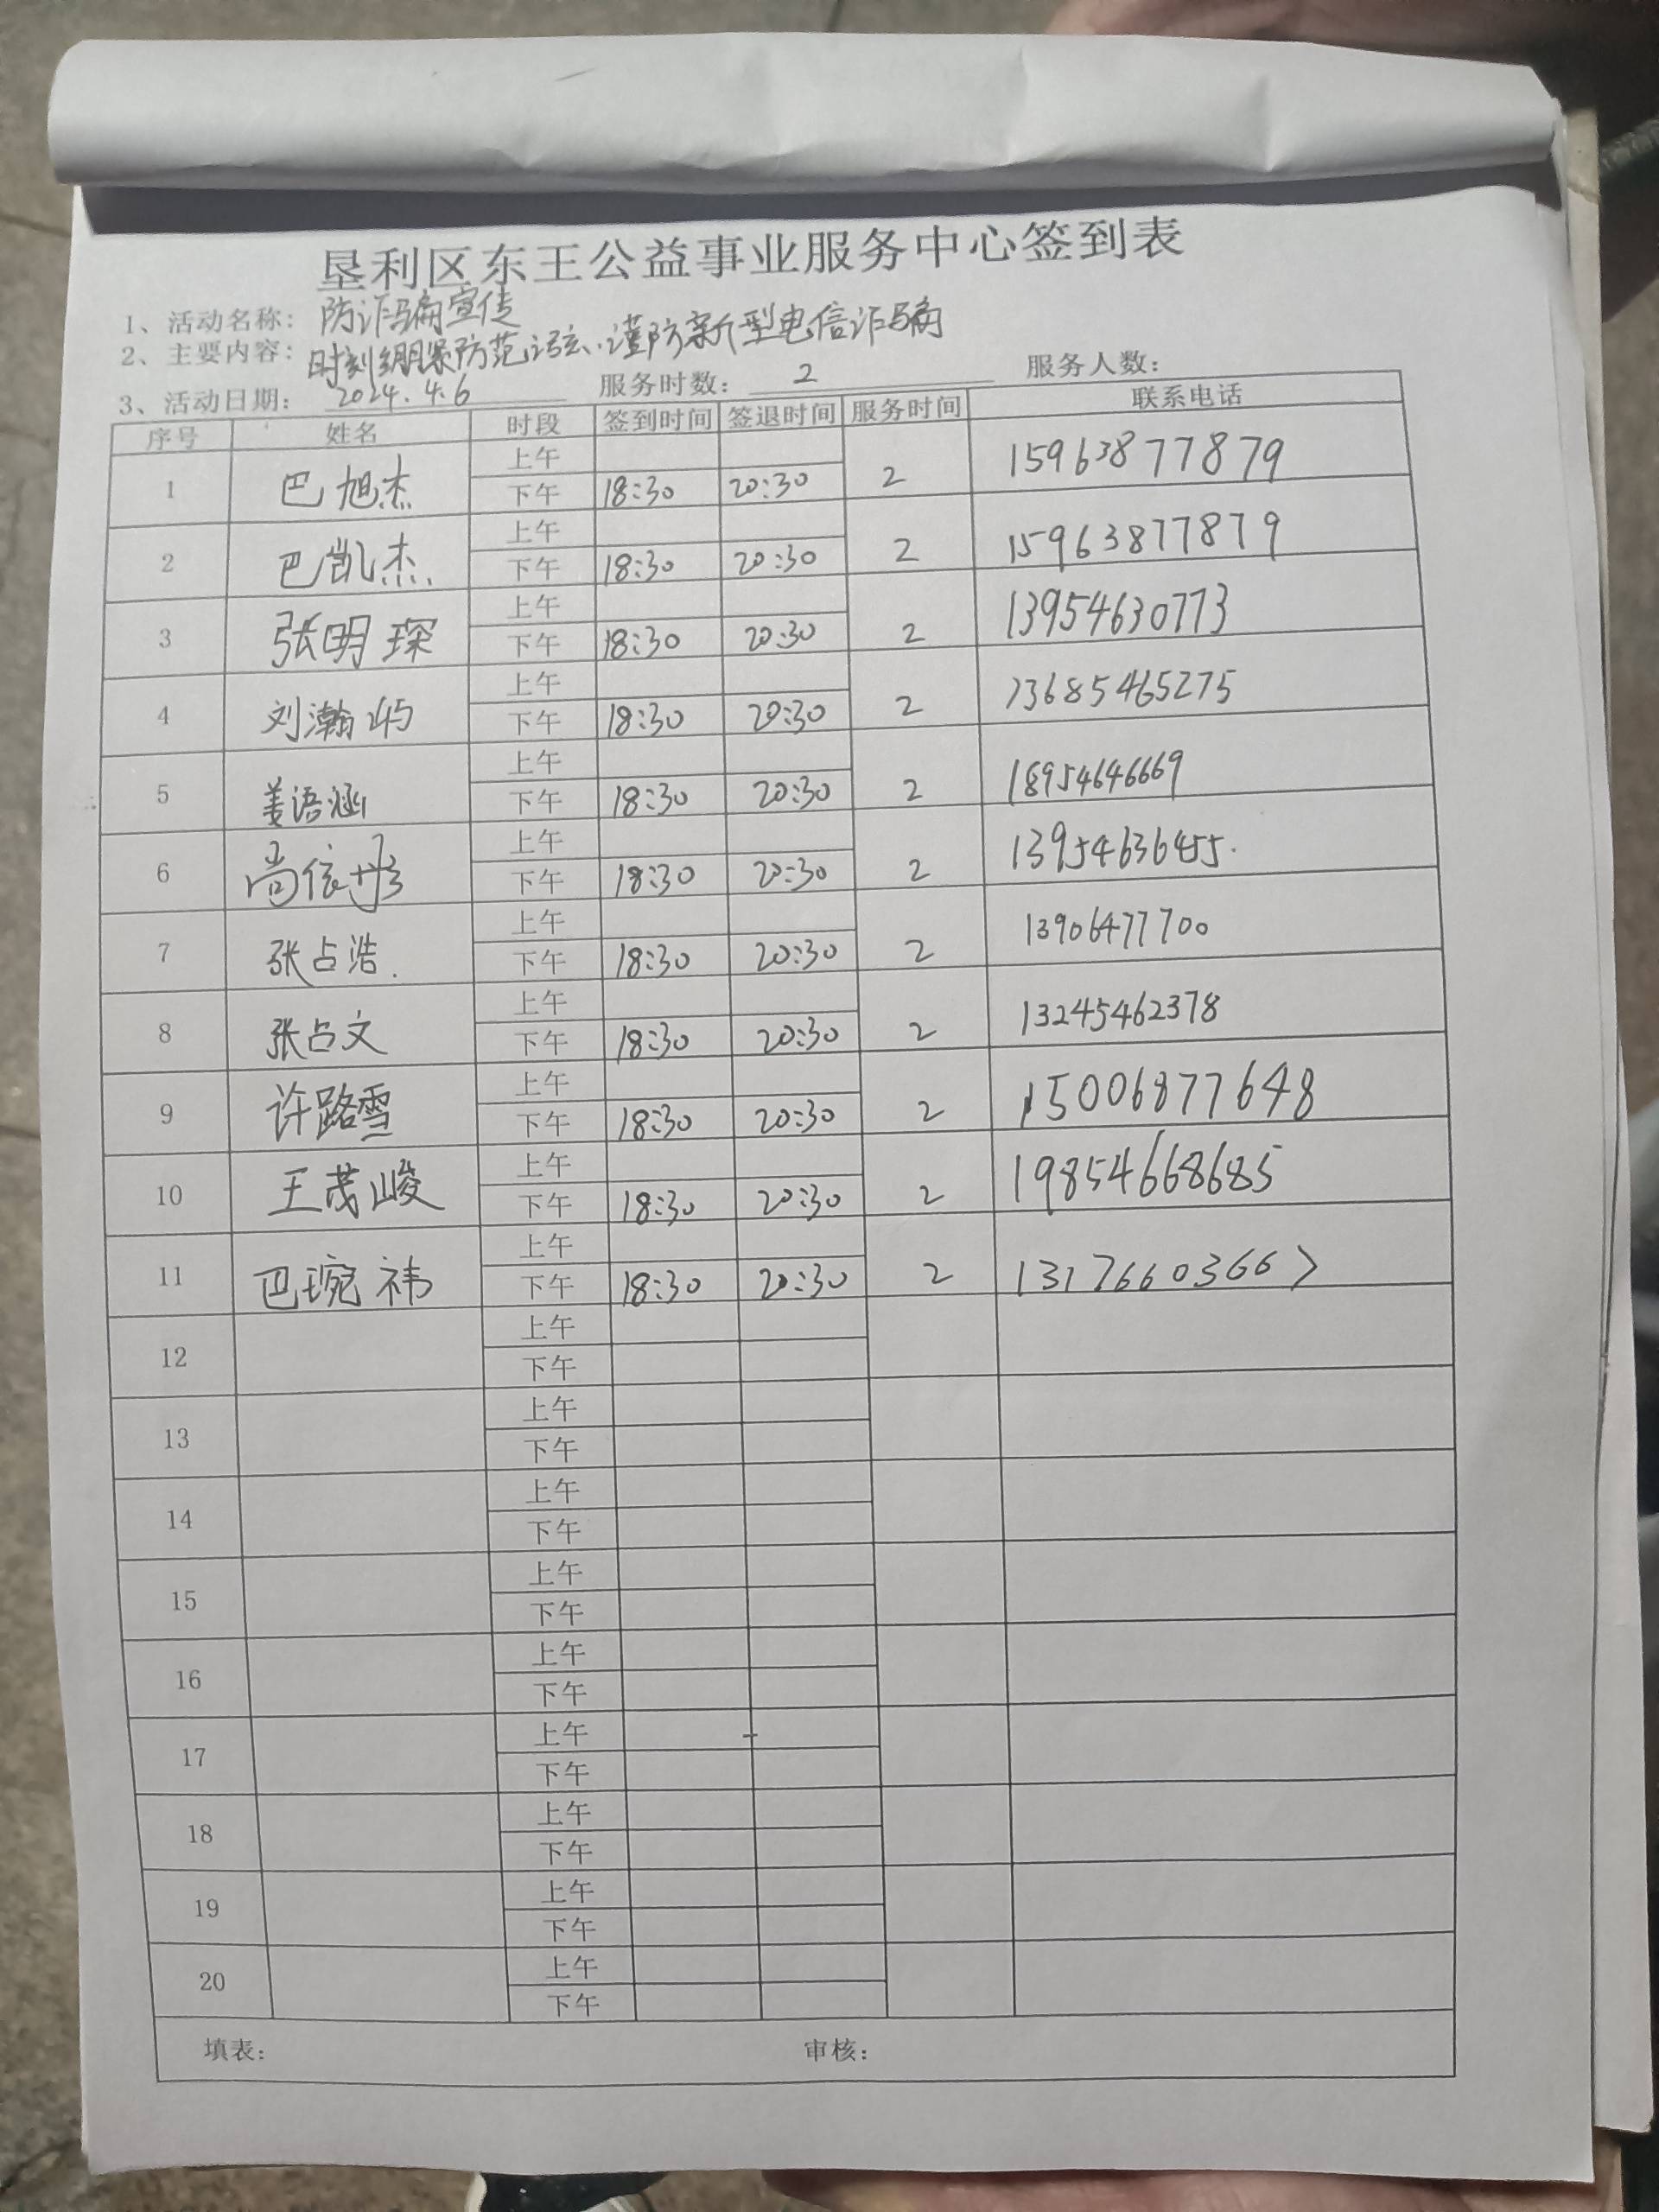 垦利区东王公益事业服务中心签到表
1、活动名称：防诈骗宣传
2、主要内容：时刻绷紧防范之弦，谨防新型电信诈骗
3、活动日期：2024.4.6 服务时数：2 服务人数：
序号 姓名 时段 签到时间 签退时间 服务时间 联系电话
上午
1 巴旭杰 下午 18:30 20:30 2 15963877879
上午
2 巴凯杰 下午 18:30 20:30 2 15963877879
上午
3 张明琛 下午 18:30 20:30 2 13954630773
上午
4 刘瀚 下午 18:30 20:30 2 13685465275
上午
5 姜语涵 下午 18:30 20:30 2 18954646669
上午
6 尚依彤 下午 18:30 20:30 2 13954636455.
上午
7 张占浩. 下午 18:30 20:30 2 13906477700
上午
8 张占文 下午 18:30 20:30 2 13245462378
上午
9 许路雪 下午 18:30 20:30 2 15006877648
上午
10 王茂峻 下午 18:30 20:30 2 19854668685
上午
11 巴琬祎 下午 18:30 20:30 2 13176603667
上午
12 下午
上午
13 下午
上午
14 下午
上午
15 下午
上午
16 下午
上午
17 下午
上午
18 下午
上午
19 下午
上午
20 下午
填表： 审核：